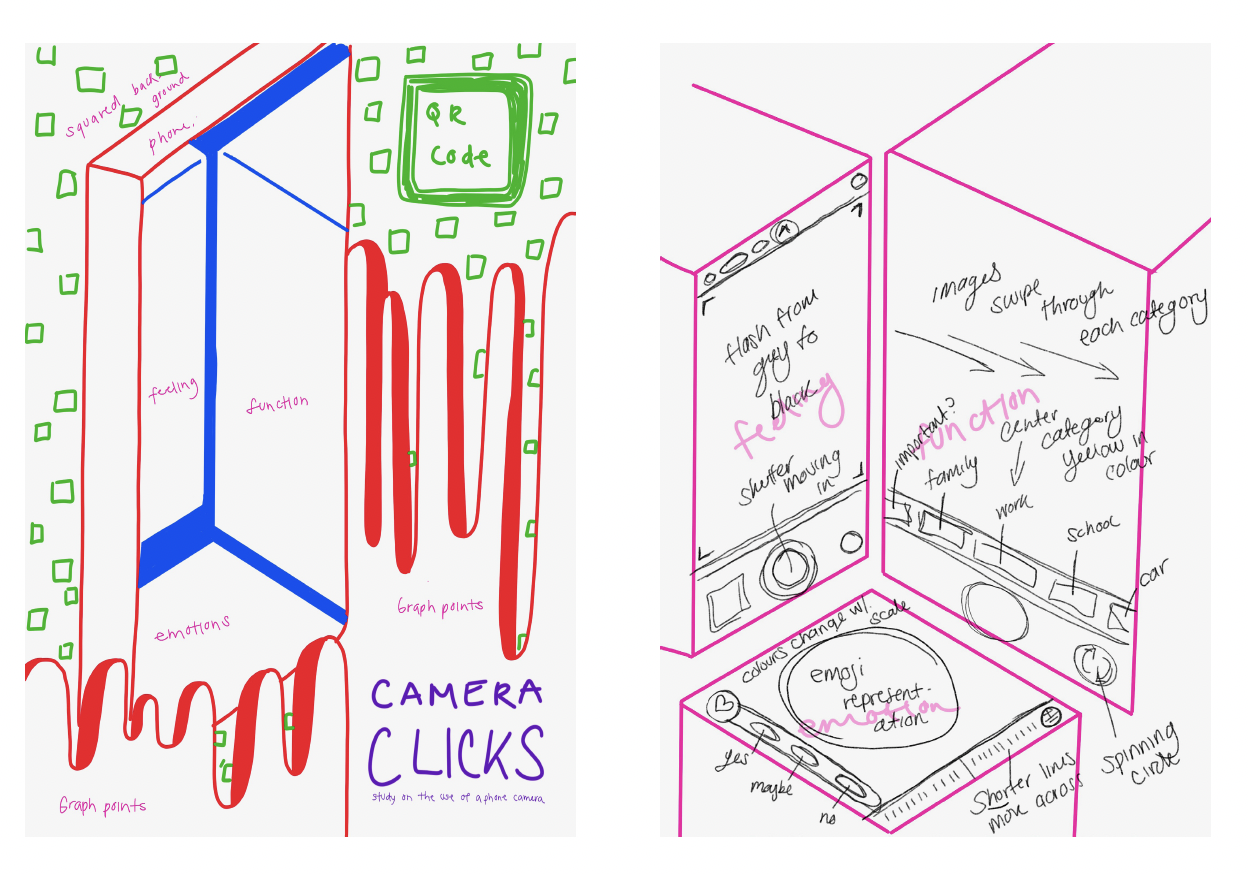 squared back
ground
phone.
QR
Code
feeling
function
emotions
Graph points
Graph points
CAMERA
CLICKS
study on the use of a phone camera
A
flash from
grey to
black
feeling
shutter
moving
in
images
swipe
through
each category
function
important?
family
center
category
yellow in
colour
work
school
car
colours change w/.
scale
emoji
represent-
ation
emotion
yes
maybe
no
Shorter lines
move across
spinning
circle